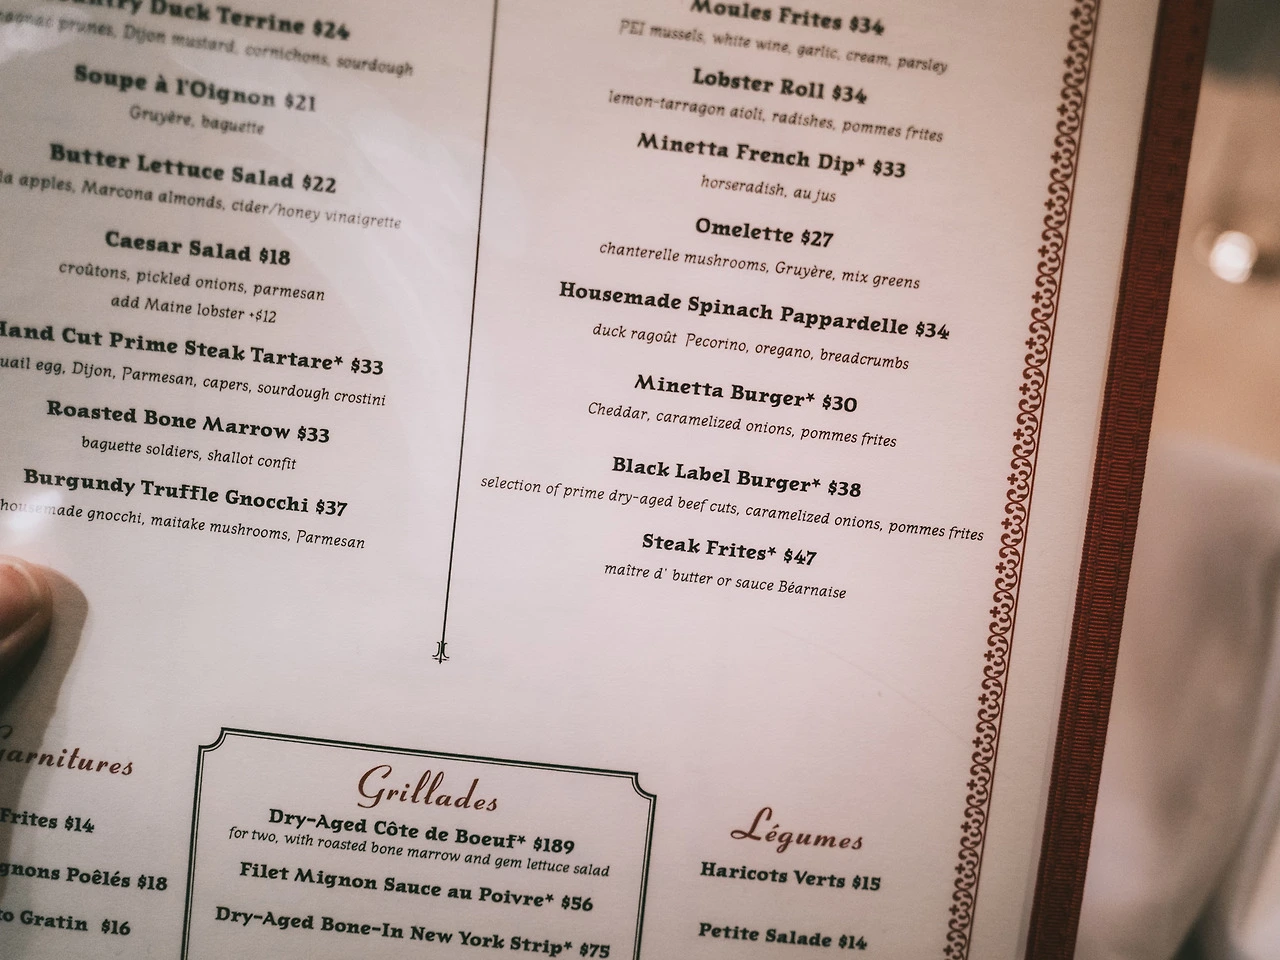 Duck Terrine $24
prunes, Dijon mustard, cornichons, sourdough
Soupe à l'Oignon $21
Gruyère, baguette
Butter Lettuce Salad $22
apples, Marcona almonds, cider/honey vinaigrette
Caesar Salad $18
croûtons, pickled onions, parmesan
add Maine lobster +$12
Hand Cut Prime Steak Tartare* $33
egg, Dijon, Parmesan, capers, sourdough crostini
Roasted Bone Marrow $33
baguette soldiers, shallot confit
Burgundy Truffle Gnocchi $37
housemade gnocchi, maitake mushrooms, Parmesan
Moules Frites $34
PEI mussels, white wine, garlic, cream, parsley
Lobster Roll $34
lemon-tarragon aioli, radishes, pommes frites
Minetta French Dip* $33
horseradish, au jus
Omelette $27
chanterelle mushrooms, Gruyère, mix greens
Housemade Spinach Pappardelle $34
duck ragoût Pecorino, oregano, breadcrumbs
Minetta Burger* $30
Cheddar, caramelized onions, pommes frites
Black Label Burger* $38
selection of prime dry-aged beef cuts, caramelized onions, pommes frites
Steak Frites* $47
maître d' butter or sauce Béarnaise
Garnitures
Frites $14
Poêlés $18
Gratin $16
Grillades
Dry-Aged Côte de Boeuf* $189
for two, with roasted bone marrow and gem lettuce salad
Filet Mignon Sauce au Poivre* $56
Dry-Aged Bone-In New York Strip* $75
Légumes
Haricots Verts $15
Petite Salade $14